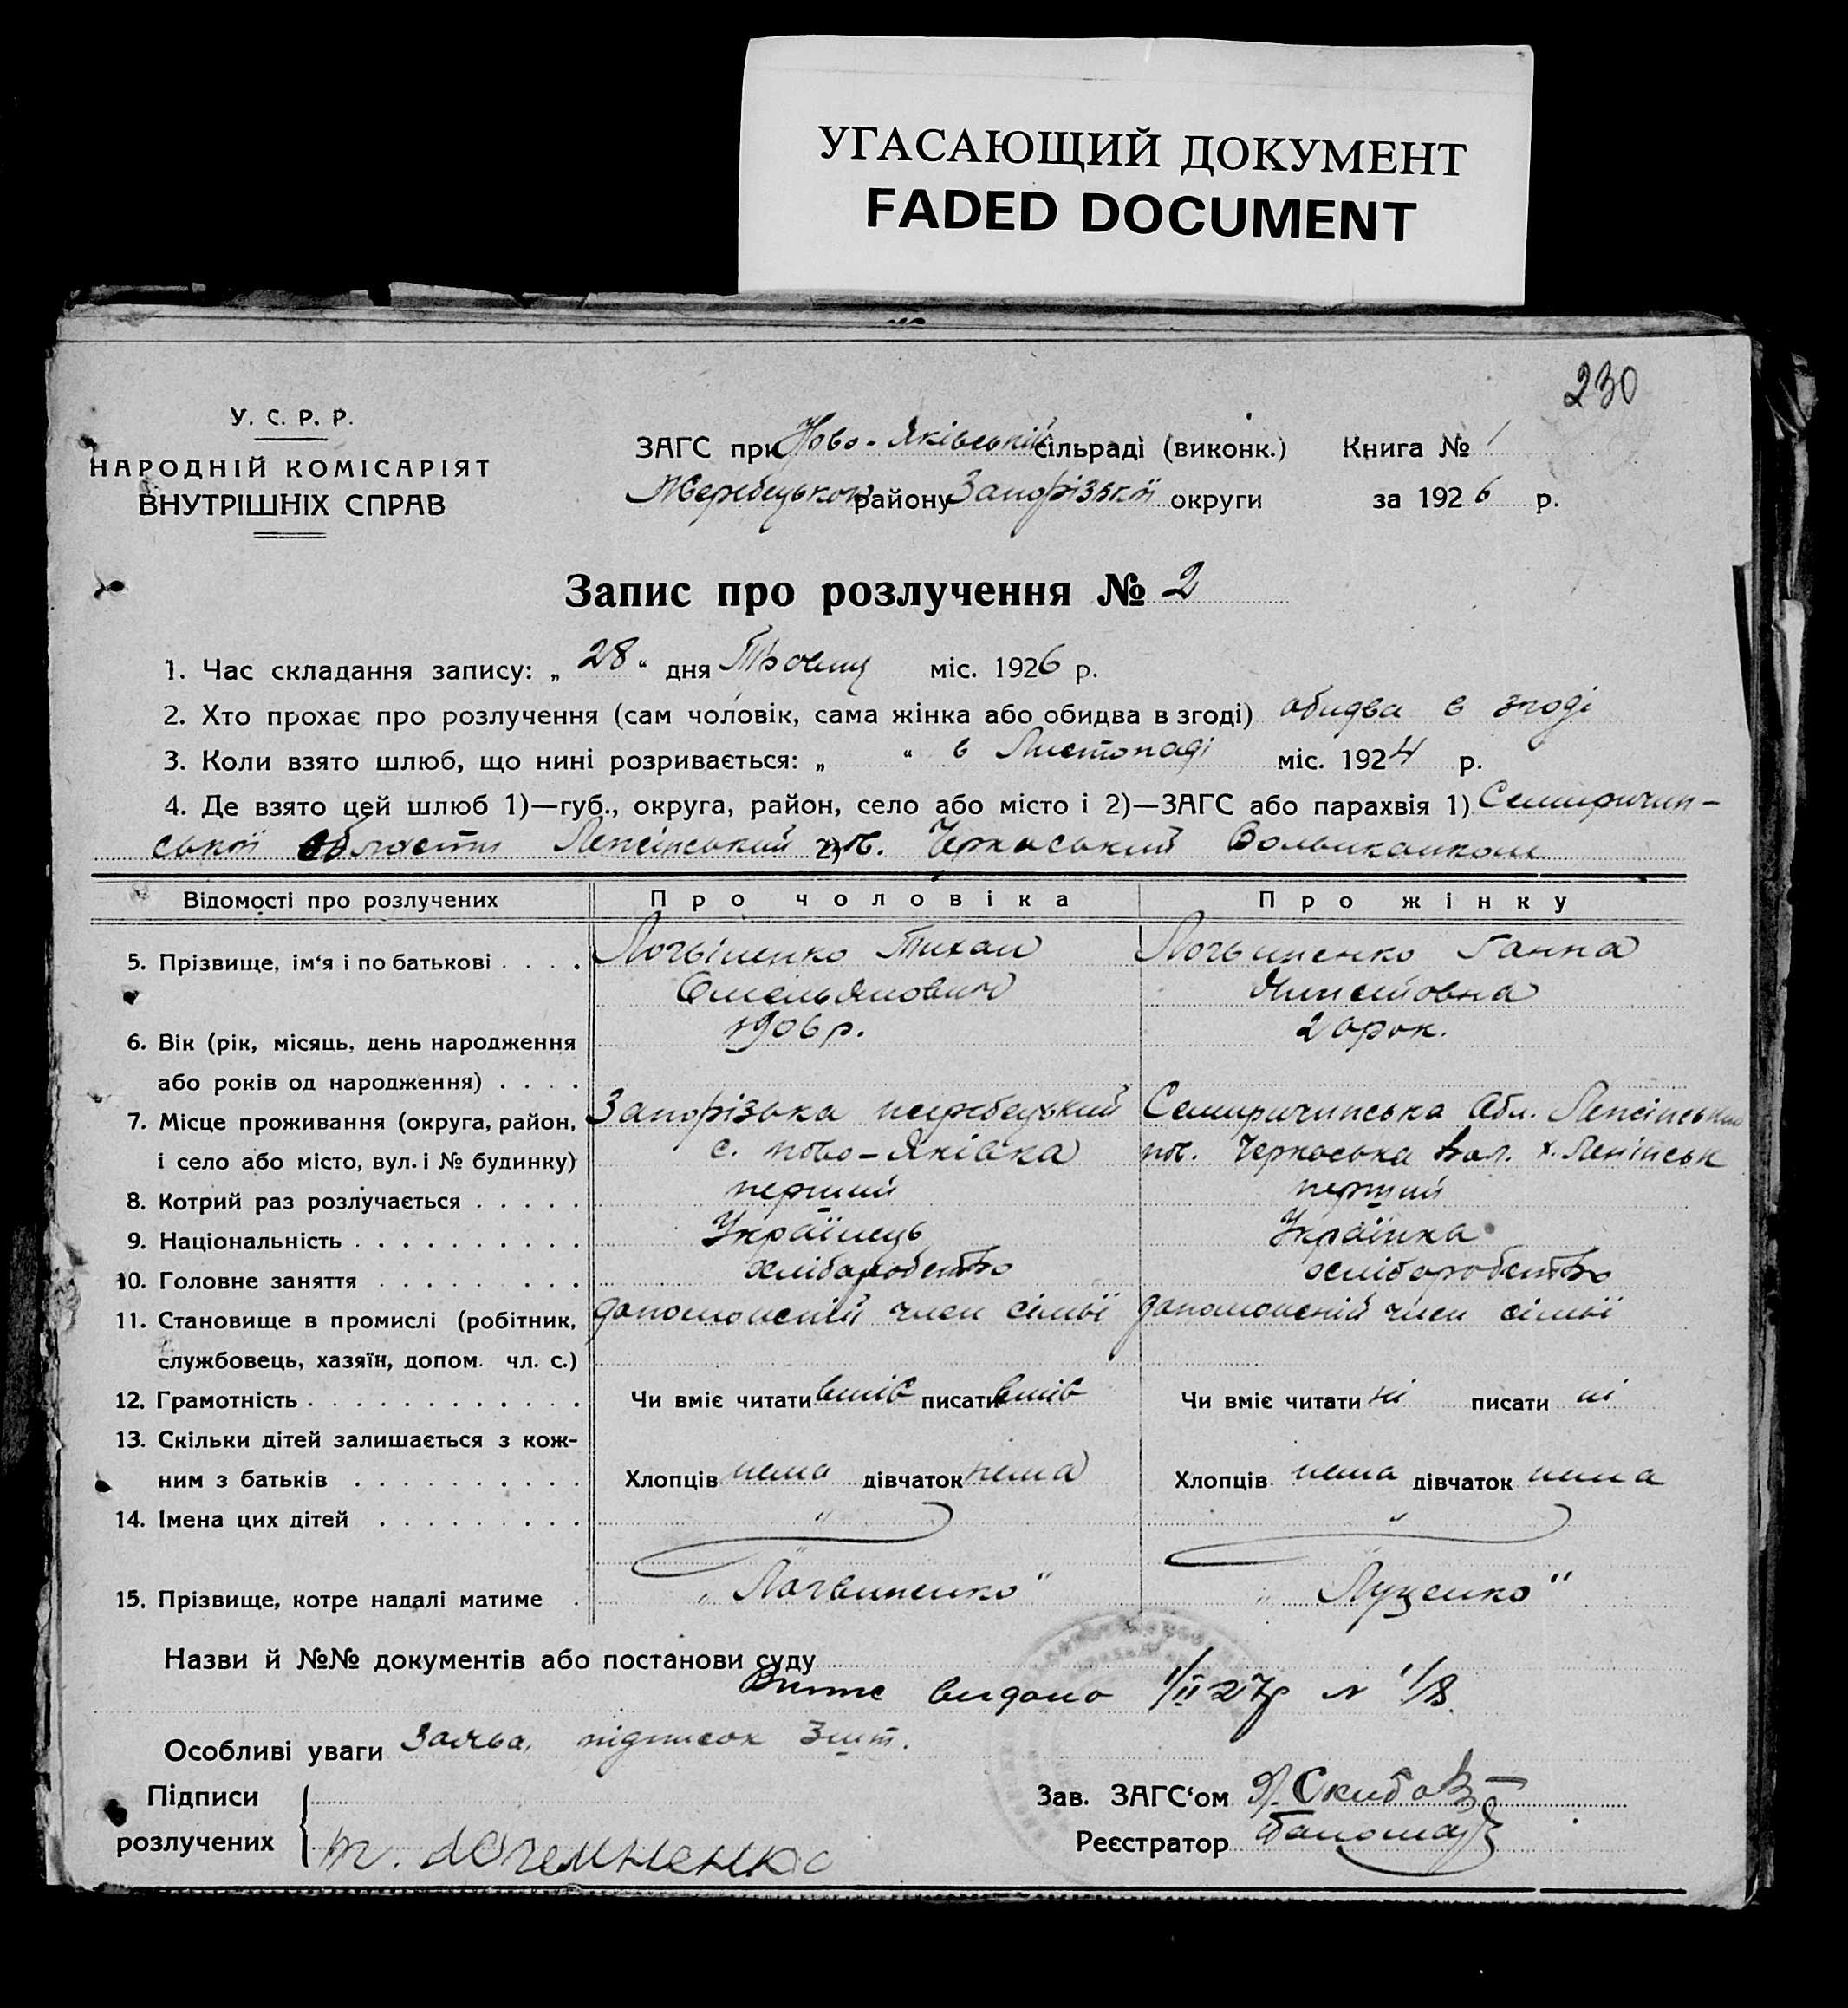 УГАСАЮЩИЙ ДОКУМЕНТ
FADED DOCUMENT
230
У. С. Р. Р.
НАРОДНІЙ КОМІСАРІЯТ
ВНУТРІШНІХ СПРАВ
ЗАГС при Ново-Яківській сільраді (виконк.) Книга № 1
Жеребецького району Запорізької округи за 1926 р.
Запис про розлучення № 2
1. Час складання запису: „ 28 “ дня міс. 1926 р.
2. Хто прохає про розлучення (сам чоловік, сама жінка або обидва в згоді) обидва в згоді
3. Коли взято шлюб, що нині розривається: „ “ в Листопаді міс. 1924 р.
4. Де взято цей шлюб 1)—губ., округа, район, село або місто і 2)—ЗАГС або парахвія 1) Семиричин-
ської області Лепсінський 2) Черкаський
Відомості про розлучених Про чоловіка Про жінку
5. Прізвище, ім‘я і по батькові . . . . Логвіненко Тихан Логвиненко Ганна
Омельянович
6. Вік (рік, місяць, день народження 1906 р. 20 рок.
або років од народження) . . . .
7. Місце проживання (округа, район, Запорізька жеребецький Семиричинська Обл. Лепсінський
і село або місто, вул. і № будинку) с. Ново-Яківка пов. Черкаська вол. х. Ленінськ
8. Котрий раз розлучається . . . . . перший перший
9. Національність . . . . . . . . . . Українець Українка
10. Головне заняття . . . . . . . . . хліборобство хліборобство
11. Становище в промислі (робітник, допоможеній член сімьї допоможеній член сімьї
службовець, хазяїн, допом. чл. с.)
12. Грамотність . . . . . . . . . . . . Чи вміє читати вміє писати вміє Чи вміє читати ні писати ні
13. Скільки дітей залишається з кож-
ним з батьків . . . . . . . . . . Хлопців нема дівчаток нема Хлопців нема дівчаток нема
14. Імена цих дітей . . . . . . . . . " "
15. Прізвище, котре надалі матиме . „ Логвиненко “ „ Луценко “
Назви й №№ документів або постанови суду
видано 1/II 27р N 1/8.
Особливі уваги Заява, підписок
Підписи
розлучених
Т. Логвиненко
Зав. ЗАГС‘ом
Реєстратор